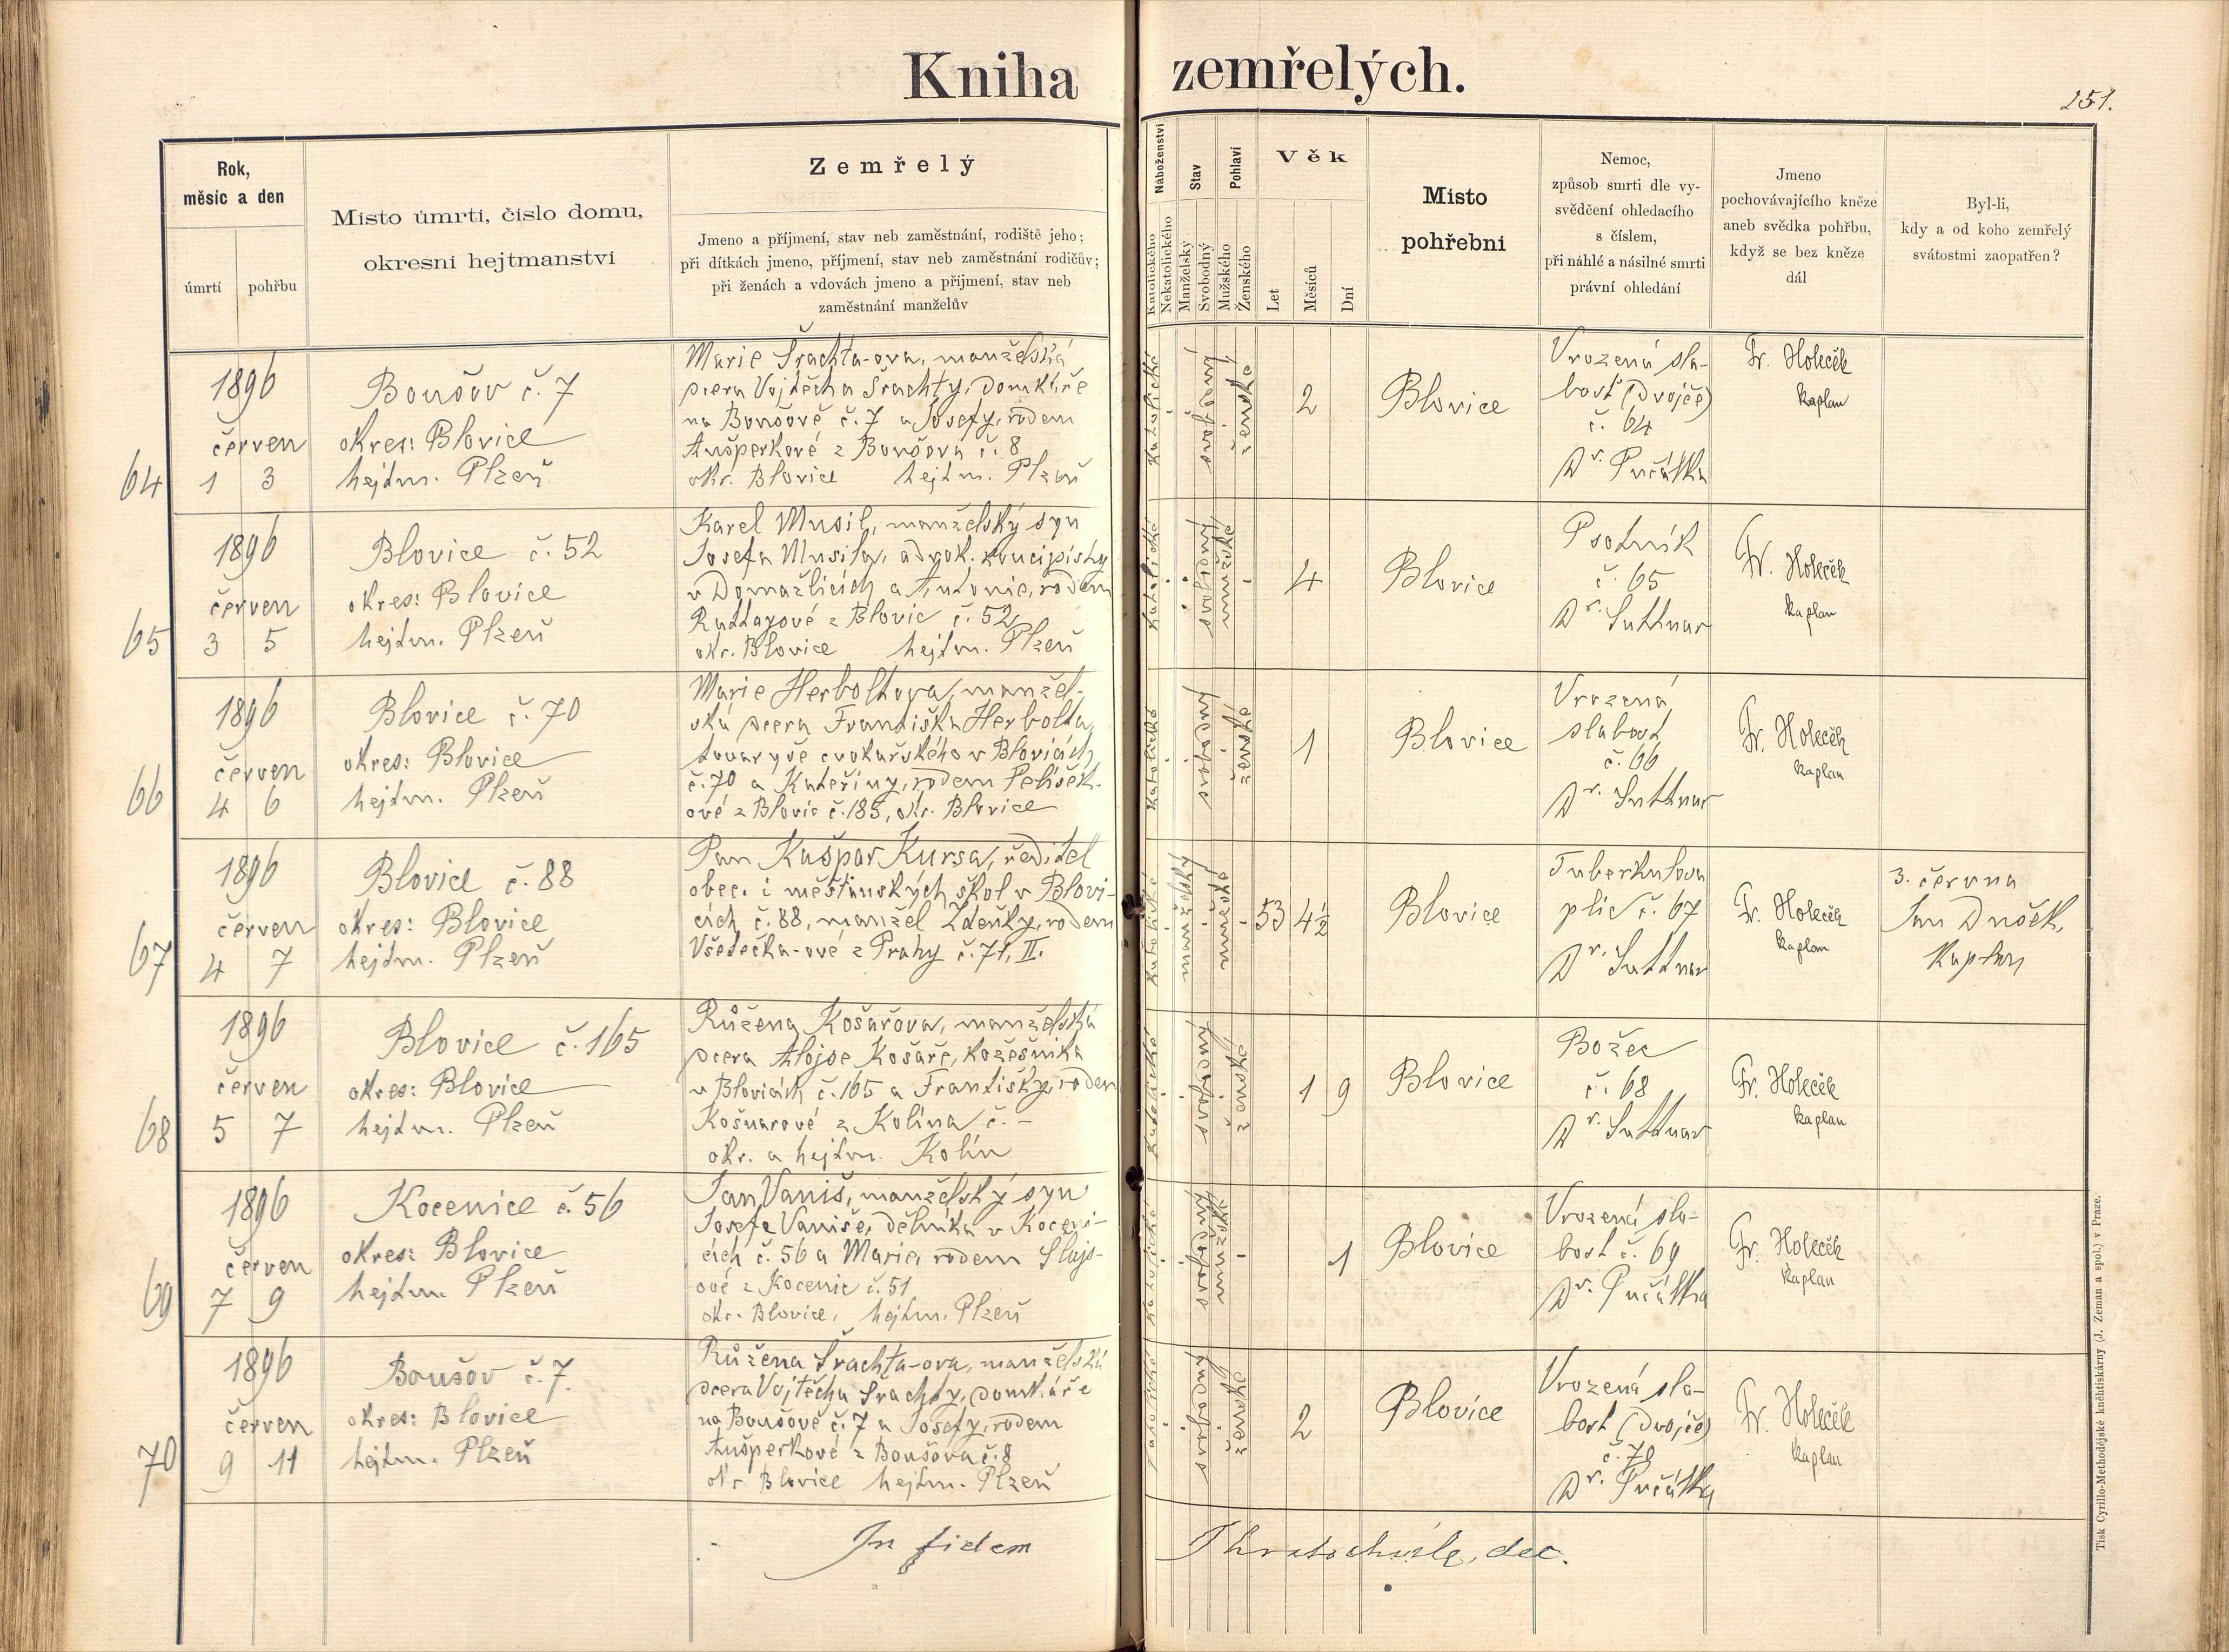 Kniha zemřelých.
251.
Rok,
měsíc a den
úmrtí
pohřbu
Místo úmrtí, číslo domu,
okresní hejtmanství
Zemřelý
Jmeno a příjmení, stav neb zaměstnání, rodiště jeho;
při dítkách jmeno, příjmení, stav neb zaměstnání rodičův;
při ženách a vdovách jmeno a příjmení, stav neb
zaměstnání manželův
Náboženství
Katolického
Nekatolického
Stav
Manželský
Svobodný
Pohlaví
Mužského
Ženského
Věk
Let
Měsíců
Dní
Místo
pohřební
Nemoc,
způsob smrti dle vy-
svědčení ohledacího
s číslem,
při náhlé a násilné smrti
právní ohledání
Jmeno
pochovávajícího kněze
aneb svědka pohřbu,
když se bez kněze
dál
Byl-li,
kdy a od koho zemřelý
svátostmi zaopatřen?
64
1896
červen
1 3
Boušov č. 7
okres: Blovice
hejtm. Plzeň
Marie Šrachta-ova, manželská
dcera Vojtěcha Šrachty, domkáře
na Boušově č. 7 a Josefy, rodem
Aušperkové z Boušova č. 8
okr. Blovice hejtm. Plzeň
katolické
svobodný
ženské
2
Blovice
Vrozená sla-
bosť (dvojče)
č. 64
Dr. Pučálka
Fr. Holeček
kaplan
65
1896
červen
3 5
Blovice č. 52
okres: Blovice
hejtm. Plzeň
Karel Musil, manželský syn
Josefa Musila, advok. koncipisty
v Domažlicích a Antonie, rodem
Ruttayové z Blovic č. 52
okr. Blovice hejtm. Plzeň
katolické
svobodný
mužské
4
Blovice
Psotník
č. 65
Dr. Suttnar
Fr. Holeček
kaplan
66
1896
červen
4 6
Blovice č. 70
okres: Blovice
hejtm. Plzeň
Marie Herboltova, manžel-
ská dcera Františka Herbolta,
tovaryše cvokařského v Blovicích
č. 70 a Kateřiny, rodem Pelíšek-
ové z Blovic č. 185, okr. Blovice
katolické
svobodný
ženské
1
Blovice
Vrozená
slabost
č. 66
Dr. Suttnar
Fr. Holeček
kaplan
67
1896
červen
4 7
Blovice č. 88
okres: Blovice
hejtm. Plzeň
Pan Kašpar Kursa, ředitel
obec. i měšťanských škol v Blovi-
cích č. 88, manžel Zdeňky, rodem
Všetečka-ové z Prahy č. 71, II.
katolické
manželský
mužské
53 4½
Blovice
Tuberkulosa
plic č. 67
Dr. Suttnar
Fr. Holeček
kaplan
3. června
Jan
Kaplan
68
1896
červen
5 7
Blovice č. 165
okres: Blovice
hejtm. Plzeň
Růžena Košařova, manželská
dcera Aloise Košaře, kožešníka
v Blovicích č. 165 a Františky, rodem
Košnarové z Kolína č. -
okr. a hejtm. Kolín
katolické
svobodný
ženské
1 9
Blovice
Božec
č. 68
Dr. Suttnar
Fr. Holeček
kaplan
69
1896
červen
7 9
Kocenice č. 56
okres: Blovice
hejtm. Plzeň
Jan Vaniš, manželský syn
Josefa Vaniše, dělníka v Koceni-
cích č. 56 a Marie, rodem Šlajs-
ové z Kocenic č. 51
okr. Blovice, hejtm. Plzeň
katolické
svobodný
mužské
1
Blovice
Vrozená sla-
bost č. 69
Dr. Pučálka
Fr. Holeček
kaplan
70
1896
červen
9 11
Boušov č. 7.
okres: Blovice
hejtm. Plzeň
Růžena Šrachta-ova, manželská
dcera Vojtěcha Šrachty, domkáře
na Boušově č. 7 a Josefy, rodem
Aušperkové z Boušova č. 8
okr. Blovice hejtm. Plzeň
katolické
svobodný
ženské
2
Blovice
Vrozená sla-
bost (dvojče)
č. 70
Dr. Pučálka
Fr. Holeček
kaplan
In fidem
dec.
Tisk Cyrillo-Methodějské knihtiskárny (J. Zeman a spol.) v Praze.